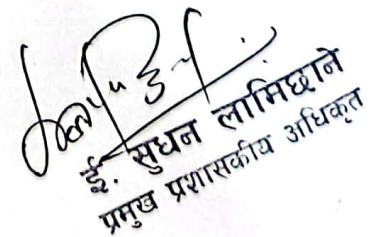 ई. सुधन लामिछाने
प्रमुख प्रशासकीय अधिकृत